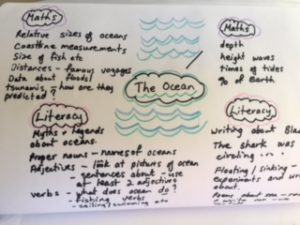 Maths
Relative sizes of oceans
Coastline measurements
Size of fish etc
Distances - famous voyages
Data about foods!
tsunamis, how are they
predicted?
Literacy
Myths + legends
about oceans.
Proper nouns - names of oceans
Adjectives - look at pictures of ocean
sentences about - use
at least 2 adjectives
verbs - what does ocean do?
- fishing verbs
- sailing/swimming etc
The Ocean
Maths
depth
height waves
times of tides
% of Earth
Literacy
Writing about
The shark was
circling
Floating / sinking -
experiments and
about.
Poems about sea